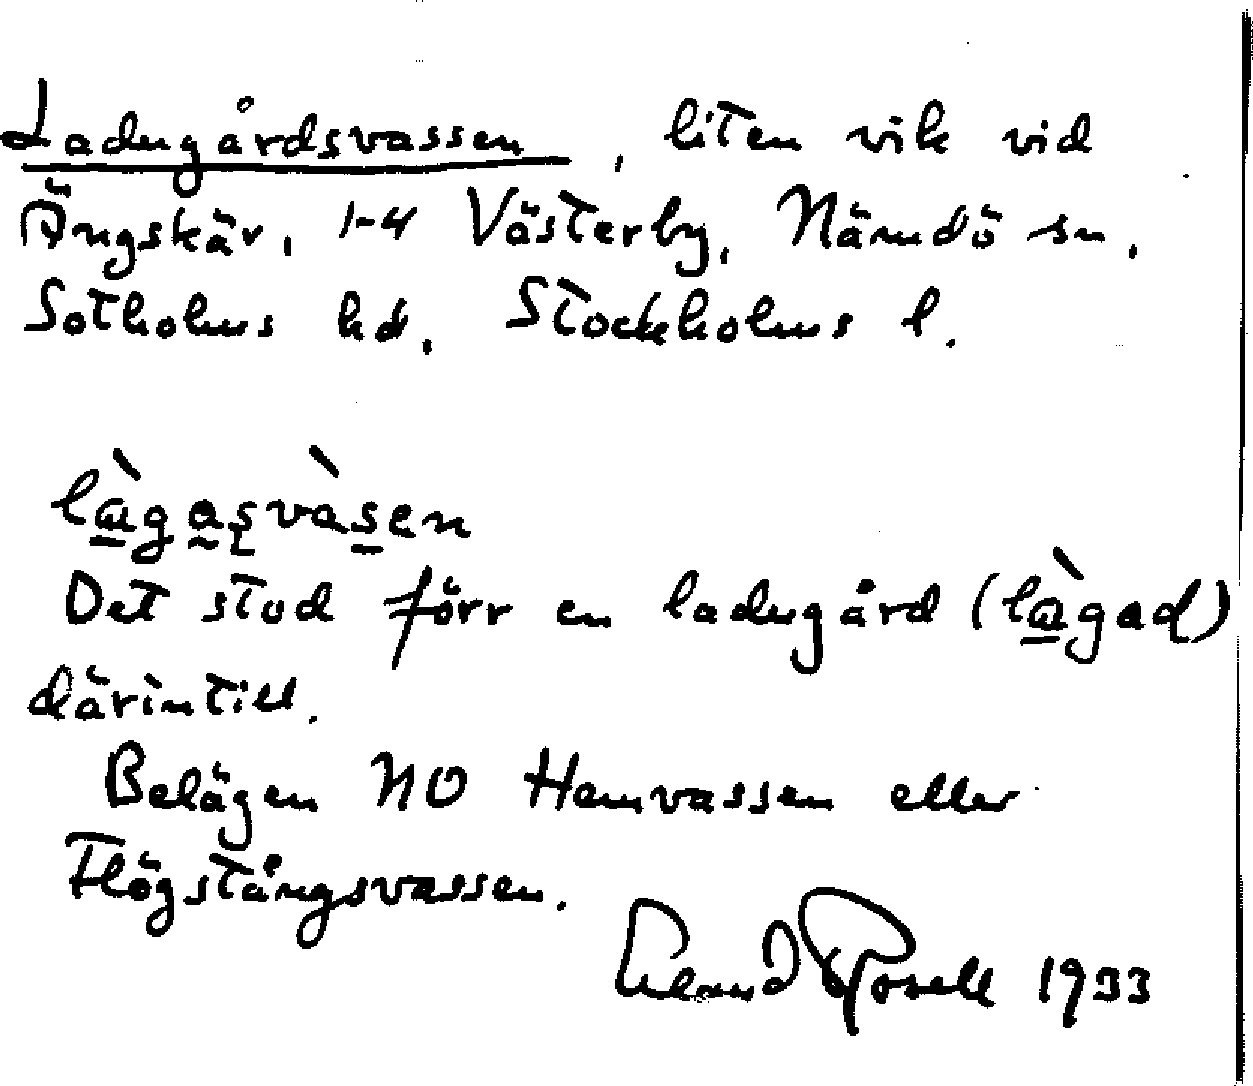 Ladugårdsvassen, liten vik vid
Ängskär, 1-4 Västerby, Nämdö sn,
Sotholms hd, Stockholms l.
là̱gas̨vàs̱en
Det stod förr en ladugård (là̱gad)
därintill.
Belägen NO Hemvassen eller
Flögstångsvassen.
Erland Rosell 1933